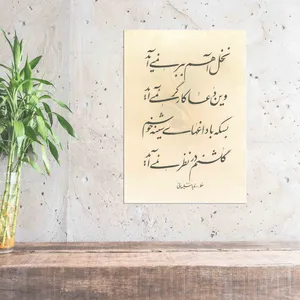 نخل آهم بر نمی‌آید
وین دعا کارگر نمی‌آید
بسکه با داغهای سینه خوشم
گلشنم در نظر نمی‌آید